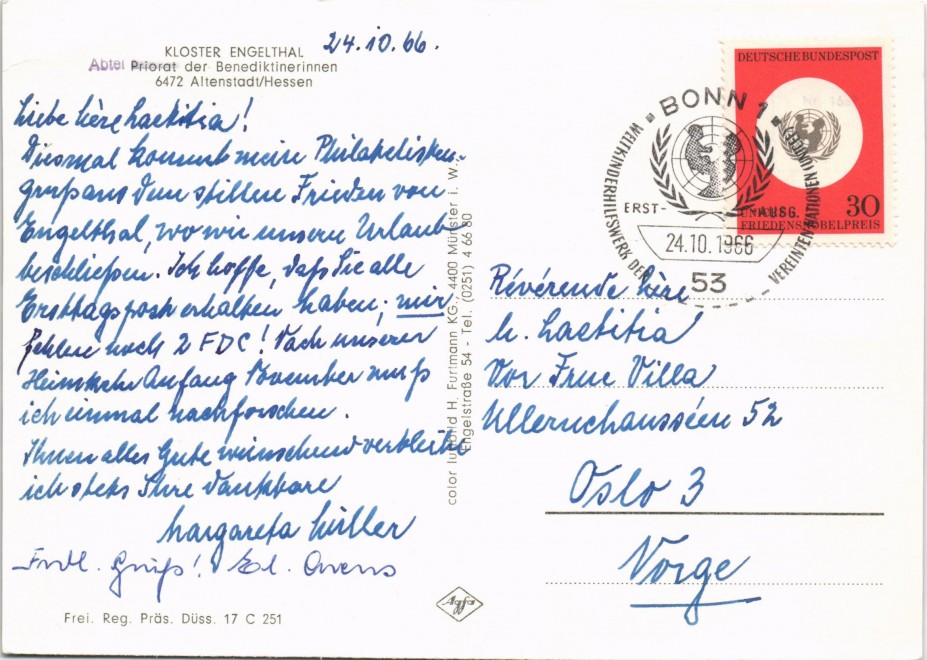 24.10.66.
KLOSTER ENGELTHAL
Abtei Priorat der Benediktinerinnen
6472 Altenstadt/Hessen
Liebe Mère Laetitia!
Diesmal kommt mein Philatelisten-
gruß aus dem stillen Frieden von
Engelthal, wo wir unsern Urlaub
beschließen. Ich hoffe, daß Sie alle
Ersttagspost erhalten haben; mir
fehlen noch 2 FDC! Nach unserer
Heimkehr Anfang November muß
ich einmal nachforschen.
Ihnen alles Gute wünschend verbleibe
ich stets Ihre dankbare
Margareta Müller
Frdl. Gruß! El.
Frei. Reg. Präs. Düss. 17 C 251
color luftbild H. Furtmann KG., 4400 Münster i. W.,
Engelstraße 54 - Tel. (0251) 4 66 80
Agfa
BONN 1
WELTKINDERHILFSWERK DER VEREINTEN NATIONEN (UNICEF)
ERST- AUSG.
24.10.1966
53
DEUTSCHE BUNDESPOST
30
UNICEF
FRIEDENSNOBELPREIS
Révérende Mère
M. Laetitia
Vor Frue Villa
Ullernchausséen 52
Oslo 3
Norge